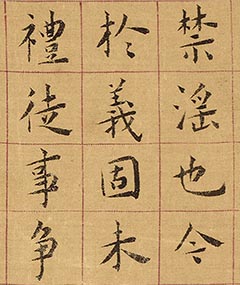 禁淫也今
於義固未
禮徒事争